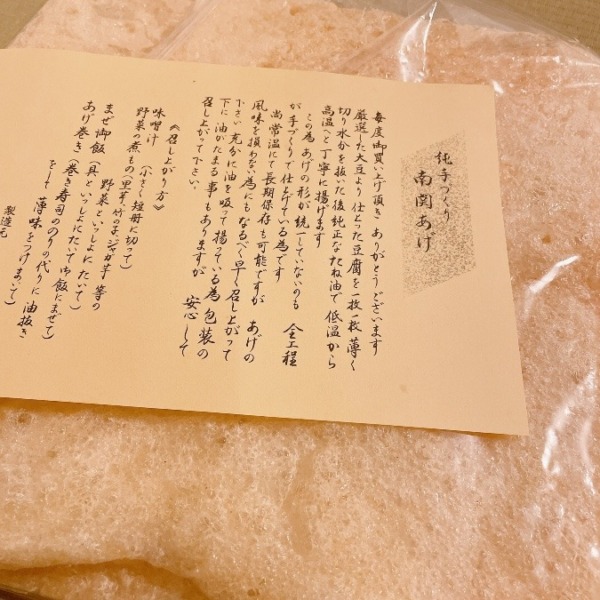 純手づくり
南関あげ
毎度御買い上げ頂き ありがとうございます
厳選した大豆より 仕上った豆腐を一枚一枚 薄く
切り水分を抜いた後 純正なたね油で 低温から
高温へと丁寧に揚げます
この為 あげの形が統一していないのも 全工程
が手づくりで仕上げている為です
尚常温にて長期保存も可能ですが あげの
風味を損わない為にもなるべく早く召し上がって
下さい 充分に油を吸って揚っている為包装の
下に油がたまる事もありますが 安心して
召し上がって下さい。
《召し上がり方》
味噌汁 (小さく短冊に切って)
野菜の煮もの(里芋、竹の子、ジャガ芋 等の
野菜といっしょにたいて)
まぜ御飯(具といっしょにたいて御飯にまぜて)
あげ巻き(巻き寿司ののりの代りに 油抜き
をして 薄味をつけまいて)
製造元